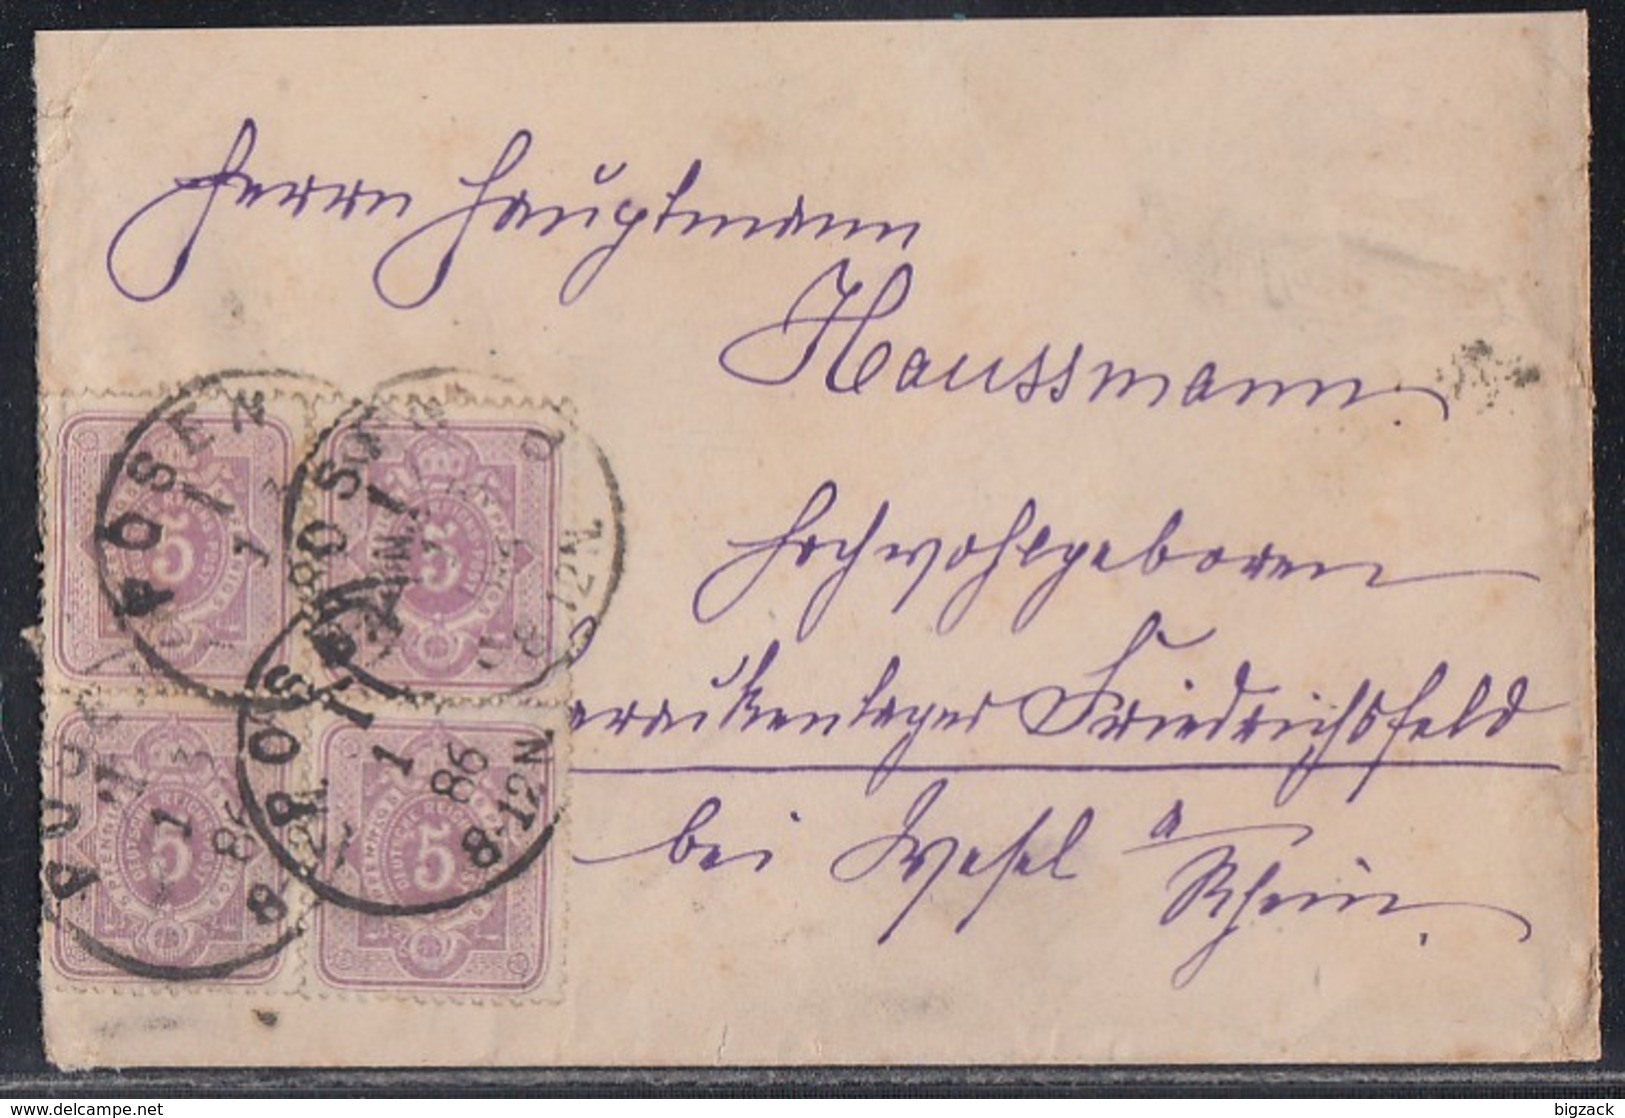 Herrn Hauptmann
Haussmann
Hochwohlgeboren
Barackenlager Friedrichsfeld
bei Wesel a/Rhein.
POSEN
1 1
POSEN
1 1
86
8-12N
POSEN
1 1
86
8-12N
5
5
5
5
delcampe.net
bigzack